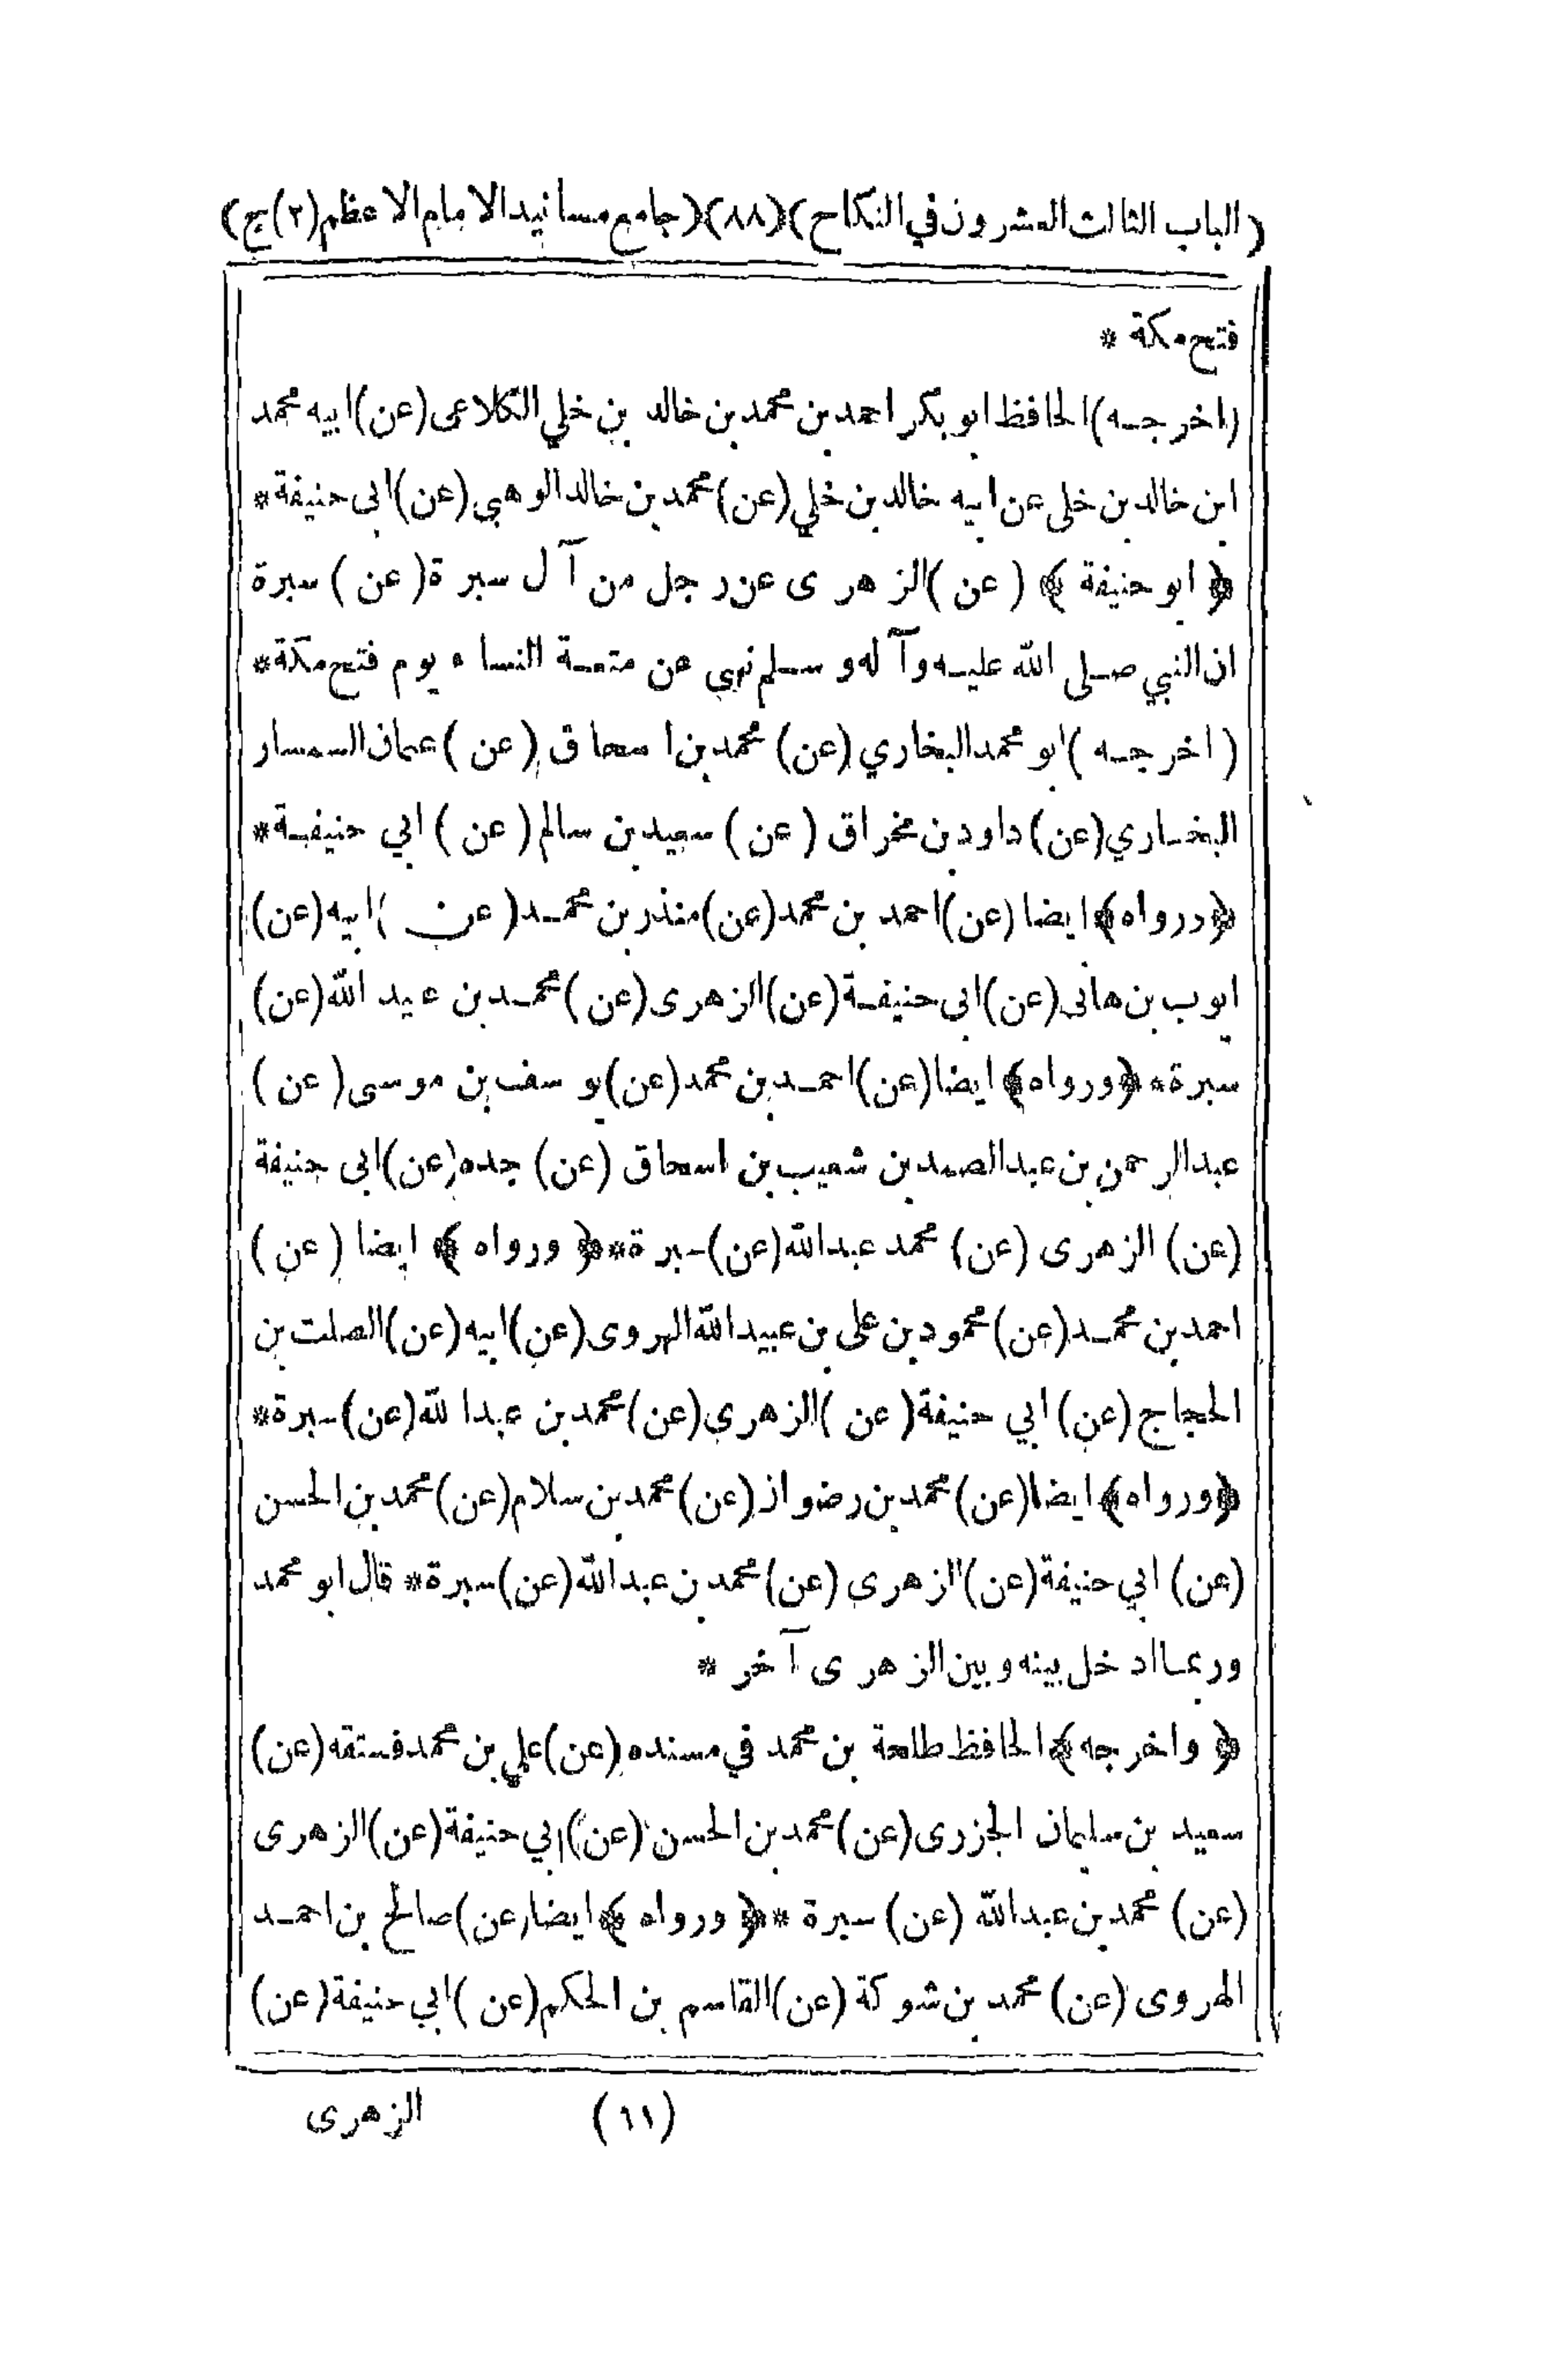 (الباب الثالث العشرون في النكاح) (٨٨) (جامع مسانيد الامام الاعظم (٢) ج)
فتح مكة *
(اخرجه) الحافظ ابو بكر احمد بن محمد بن خالد بن خلي الكلاعى (عن) ابيه محمد
ابن خالد بن خلى عن ابيه خالد بن خلي (عن) محمد بن خالد الوهبي (عن) ابى حنيفة *
﴿ ابو حنيفة ﴾ (عن) الزهرى عن رجل من آل سبرة (عن) سبرة
ان النبي صلى الله عليه وآله وسلم نهى عن متعة النساء يوم فتح مكة *
(اخرجه) ابو محمد البخاري (عن) محمد بن اسحاق (عن) عثمان السمسار
البخاري (عن) داود بن مخراق (عن) سعيد بن سالم (عن) ابي حنيفة *
﴿ورواه﴾ ايضا (عن) احمد بن محمد (عن) منذر بن محمد (عن) ابيه (عن)
ايوب بن هانى (عن) ابى حنيفة (عن) الزهرى (عن) محمد بن عبيد الله (عن)
سبرة * ﴿ورواه﴾ ايضا (عن) احمد بن محمد (عن) يوسف بن موسى (عن)
عبد الرحمن بن عبد الصمد بن شعيب بن اسحاق (عن) جده (عن) ابى حنيفة
(عن) الزهرى (عن) محمد عبد الله (عن) سبرة * ﴿ ورواه ﴾ ايضا (عن)
احمد بن محمد (عن) محمود بن على بن عبيد الله الهروى (عن) ابيه (عن) الصلت بن
الحجاج (عن) ابي حنيفة (عن) الزهري (عن) محمد بن عبد الله (عن) سبرة *
﴿ورواه﴾ ايضا (عن) محمد بن رضوان (عن) محمد بن سلام (عن) محمد بن الحسن
(عن) ابي حنيفة (عن) الزهرى (عن) محمد بن عبد الله (عن) سبرة * قال ابو محمد
وربما ادخل بينه وبين الزهرى آخر *
﴿ واخرجه ﴾ الحافظ طلحة بن محمد في مسنده (عن) علي بن محمد فستقه (عن)
سعيد بن سليمان الجزرى (عن) محمد بن الحسن (عن) ابي حنيفة (عن) الزهرى
(عن) محمد بن عبد الله (عن) سبرة * ﴿ ورواه ﴾ ايضا (عن) صالح بن احمد
الهروى (عن) محمد بن شوكة (عن) القاسم بن الحكم (عن) ابي حنيفة (عن)
(١١) الزهرى